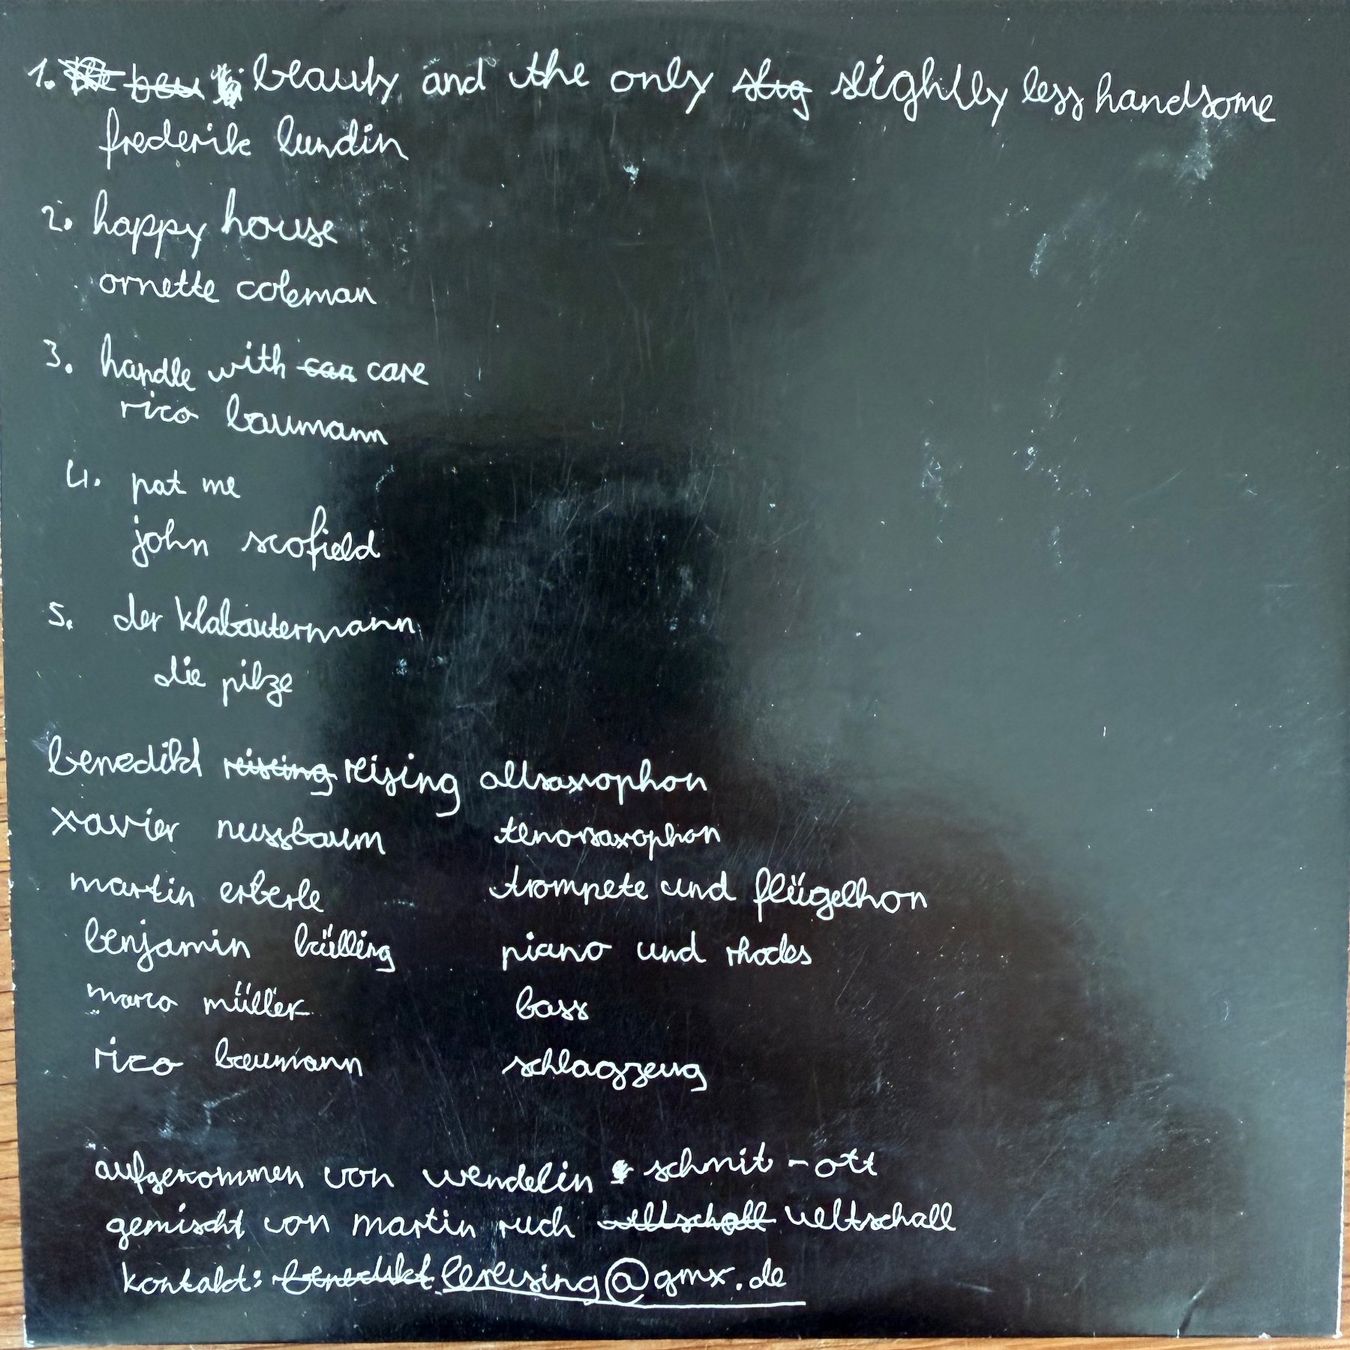 1. beauty and the only slightly less handsome
frederik lundin
2. happy house
ornette coleman
3. handle with care
rico baumann
4. pat me
john scofield
5. der klabautermann
die pilze
benedikt reising altsaxophon
xavier nussbaum tenorsaxophon
martin erberle trompete und flügelhon
benjamin külling piano und rhodes
marco müller bass
rico baumann schlagzeug
aufgenommen von wendelin schmit-ott
gemischt von martin ruch weltschall
kontakt: @gmx.de